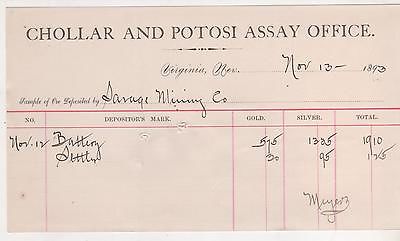 CHOLLAR AND POTOSI ASSAY OFFICE.
Virginia, Nev. Nov 13 - 1893
Sample of Ore Deposited by Savage Mining Co
NO. DEPOSITOR'S MARK. GOLD. SILVER. TOTAL.
Nov. 12 Battery 575 1335 1910
30 95 125